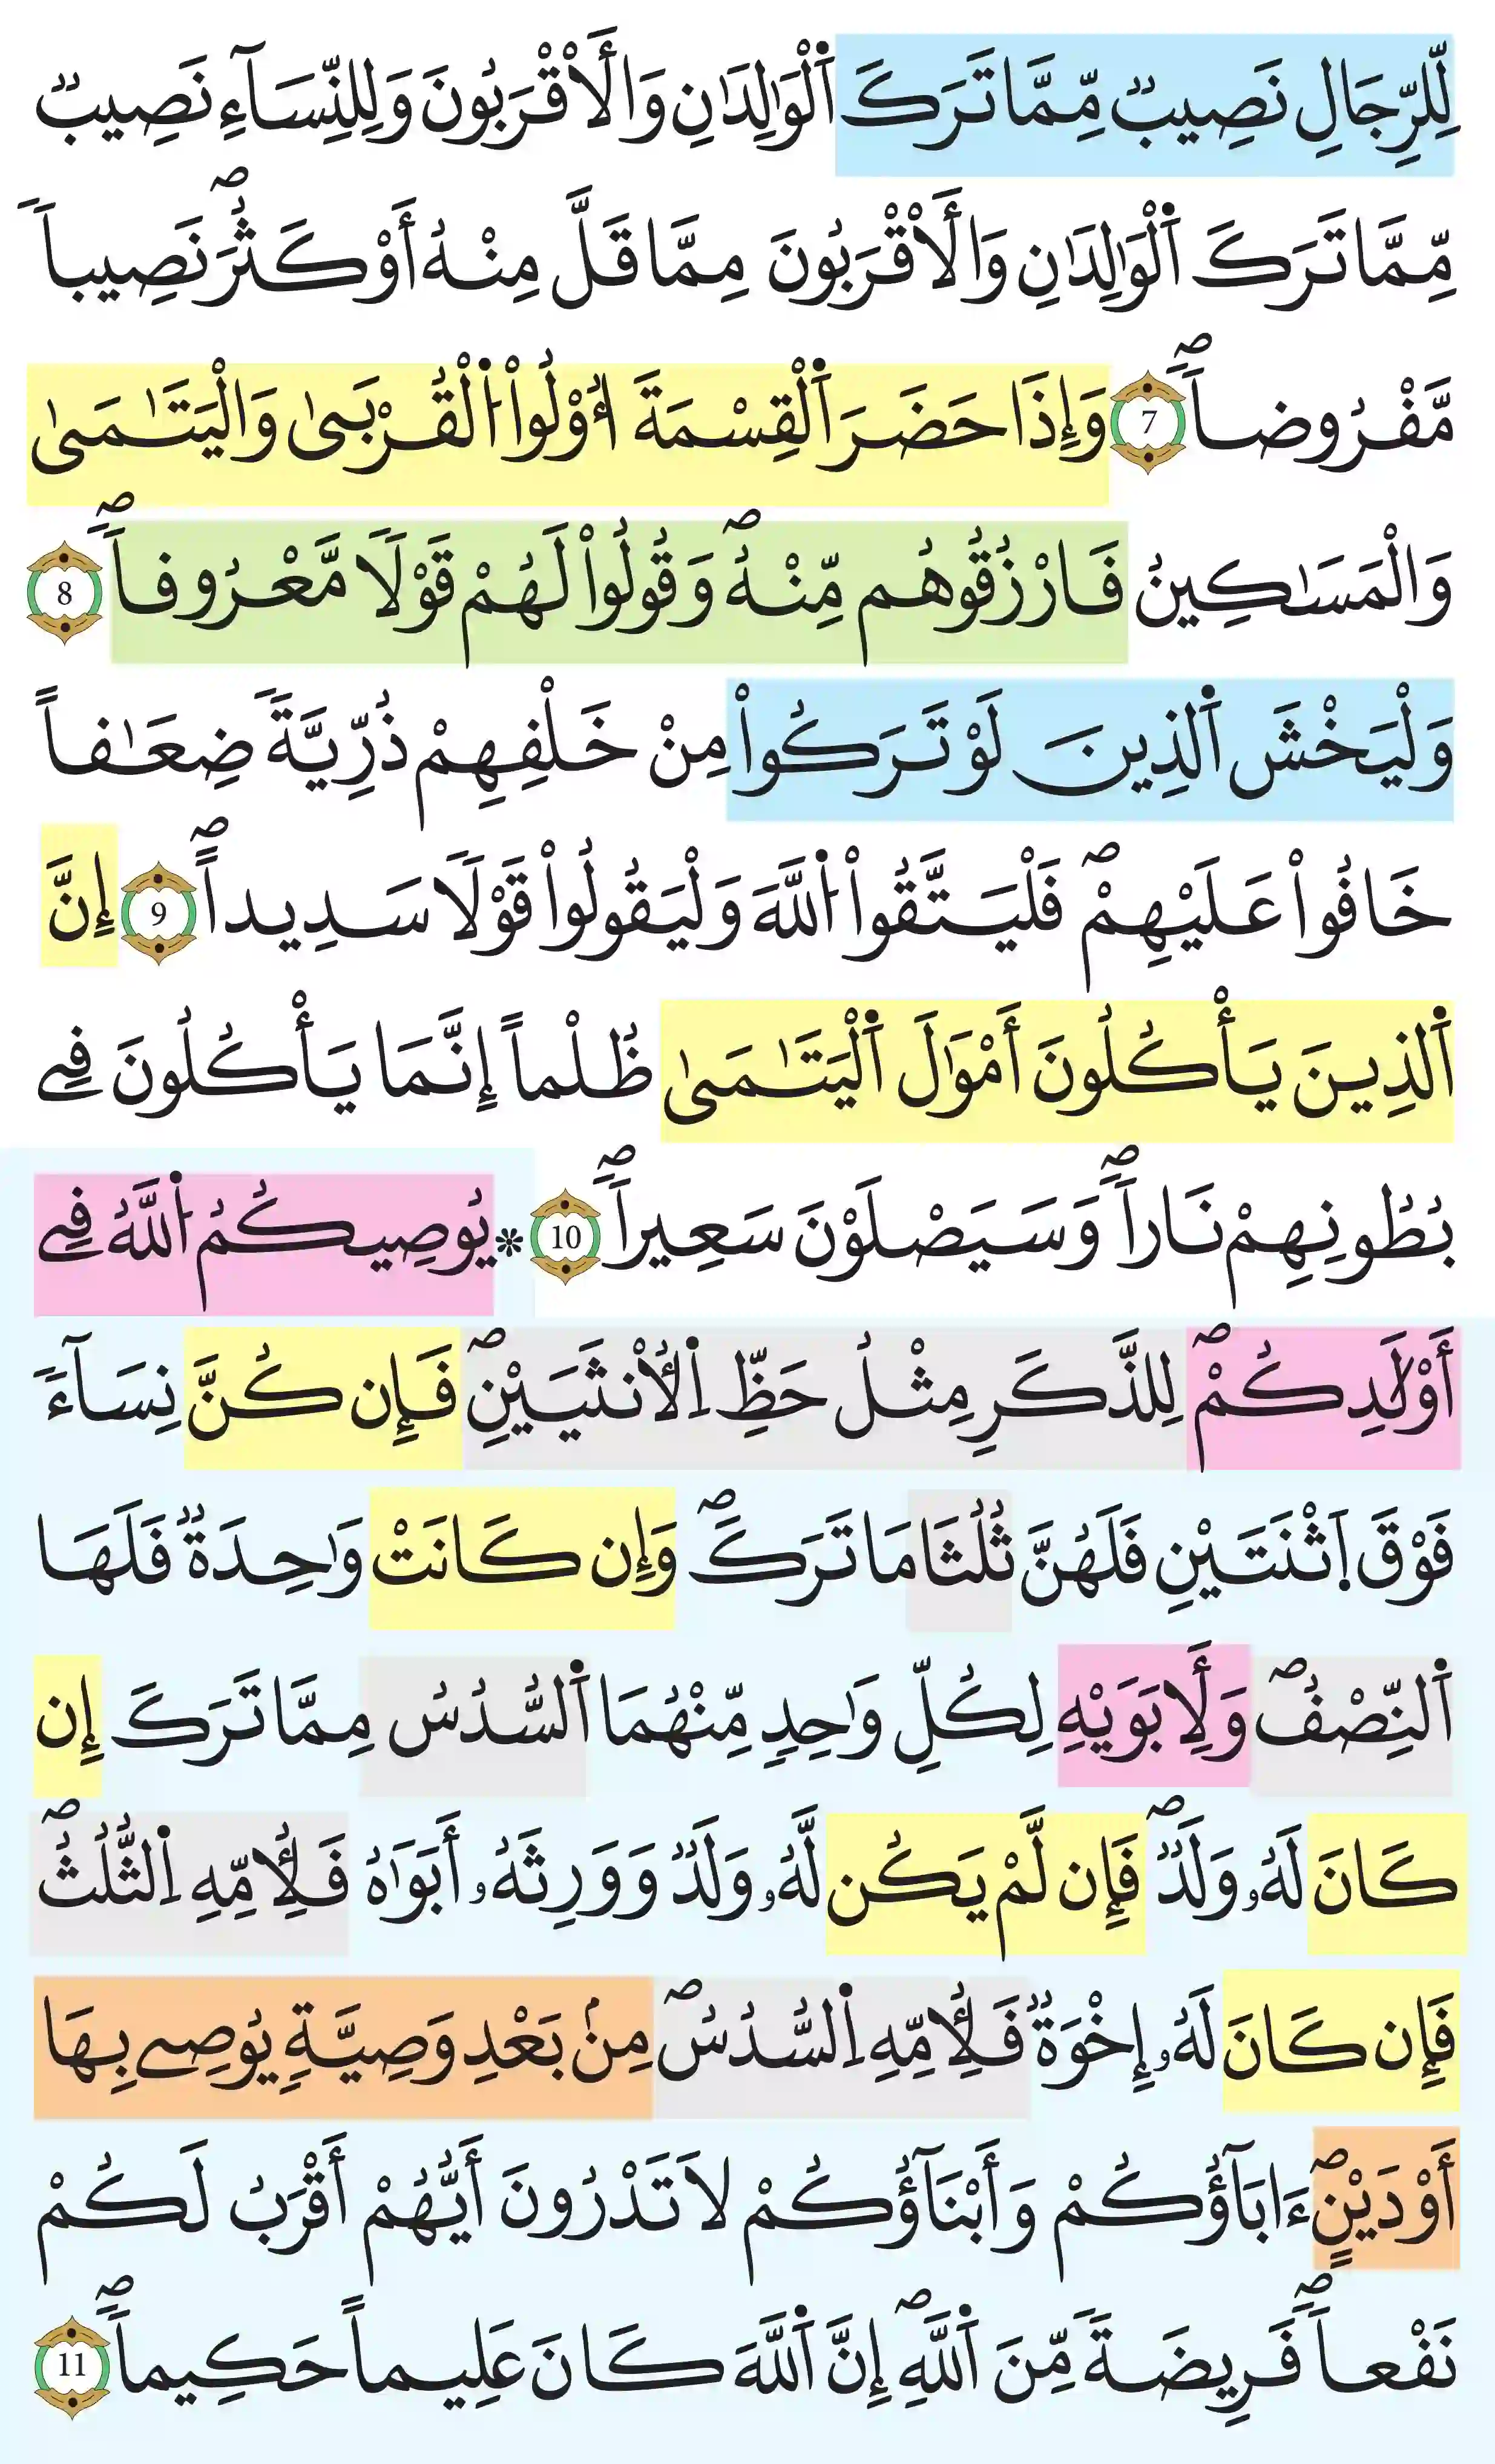 لِّلرِّجَالِ نَصِيبٌ مِّمَّا تَرَكَ اَ۬لْوَٰلِدَٰنِ وَالَاقْرَبُونَ وَلِلنِّسَآءِ نَصِيبٌ
مِّمَّا تَرَكَ اَ۬لْوَٰلِدَٰنِ وَالَاقْرَبُونَ مِمَّا قَلَّ مِنْهُ أَوْ كَثُرَۖ نَصِيباٗ
مَّفْرُوضاٗۖ 7 وَإِذَا حَضَرَ اَ۬لْقِسْمَةَ أُوْلُواْ اُ۬لْقُرْبَىٰ وَالْيَتَٰمَىٰ
وَالْمَسَٰكِينُ فَارْزُقُوهُم مِّنْهُۖ وَقُولُواْ لَهُمْ قَوْلاٗ مَّعْرُوفاٗۖ 8
وَلْيَخْشَ اَ۬لذِينَ لَوْ تَرَكُواْ مِنْ خَلْفِهِمْ ذُرِّيَّةٗ ضِعَٰفاً
خَافُواْ عَلَيْهِمْۖ فَلْيَتَّقُواْ اُ۬للَّهَ وَلْيَقُولُواْ قَوْلاٗ سَدِيداًۖ 9 إِنَّ
اَ۬لذِينَ يَأْكُلُونَ أَمْوَٰلَ اَ۬لْيَتَٰمَىٰ ظُلْماً إِنَّمَا يَأْكُلُونَ فِے
بُطُونِهِمْ نَاراٗۖ وَسَيَصْلَوْنَ سَعِيراٗۖ 10 * يُوصِيكُمُ اُ۬للَّهُ فِے
أَوْلَٰدِكُمْۖ لِلذَّكَرِ مِثْلُ حَظِّ اِ۬لُانثَيَيْنِۖ فَإِن كُنَّ نِسَآءٗ
فَوْقَ اَ۪ثْنَتَيْنِ فَلَهُنَّ ثُلُثَا مَا تَرَكَۖ وَإِن كَانَتْ وَٰحِدَةٞ فَلَهَا
اَ۬لنِّصْفُۖ وَلِأَبَوَيْهِ لِكُلِّ وَٰحِدٍ مِّنْهُمَا اَ۬لسُّدُسُ مِمَّا تَرَكَ إِن
كَانَ لَهُۥ وَلَدٞۖ فَإِن لَّمْ يَكُن لَّهُۥ وَلَدٞ وَوَرِثَهُۥ أَبَوَٰهُ فَلِأُمِّهِ اِ۬لثُّلُثُۖ
فَإِن كَانَ لَهُۥ إِخْوَةٞ فَلِأُمِّهِ اِ۬لسُّدُسُۖ مِنۢ بَعْدِ وَصِيَّةٖ يُوصِے بِهَا
أَوْ دَيْنٍۖ ءَابَآؤُكُمْ وَأَبْنَآؤُكُمْ لَا تَدْرُونَ أَيُّهُمْ أَقْرَبُ لَكُمْ
نَفْعاٗۖ فَرِيضَةٗ مِّنَ اَ۬للَّهِۖ إِنَّ اَ۬للَّهَ كَانَ عَلِيماً حَكِيماٗۖ 11